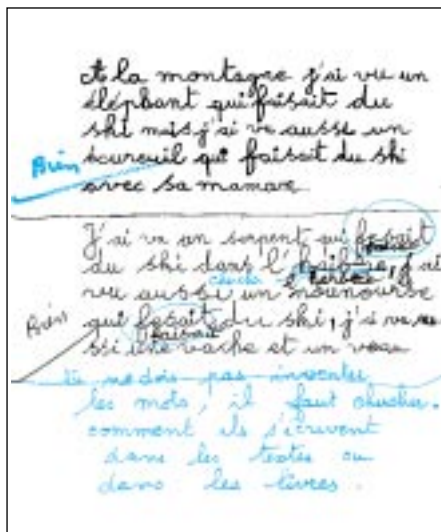 A la montagne j'ai vu un
éléphant qui faisait du
ski mais j'ai vu aussi un
Bien écureuil qui faisait du ski
avec sa maman
J'ai vu un serpent qui fesait
du ski dans l' j'ai
cherche
vu aussi un nounourse
Bien qui fesait du ski, j'ai vu au
faisait
ssi une vache et un veau
Tu ne dois pas inventer
les mots, il faut chercher.
comment ils s'écrivent
dans les textes ou
dans les livres.